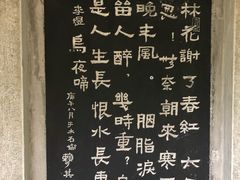 林花謝了春紅太
怱！无奈朝來寒
晚來風。胭脂淚
留人醉，幾時重？自
是人生長恨水長東
李煜 烏夜啼
八月 賴